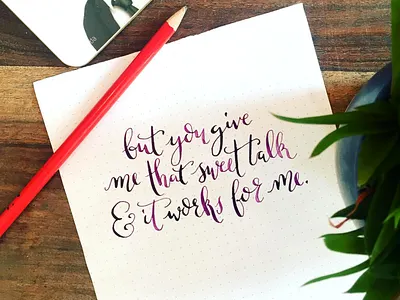 but you give
me that sweet talk
& it works for me.